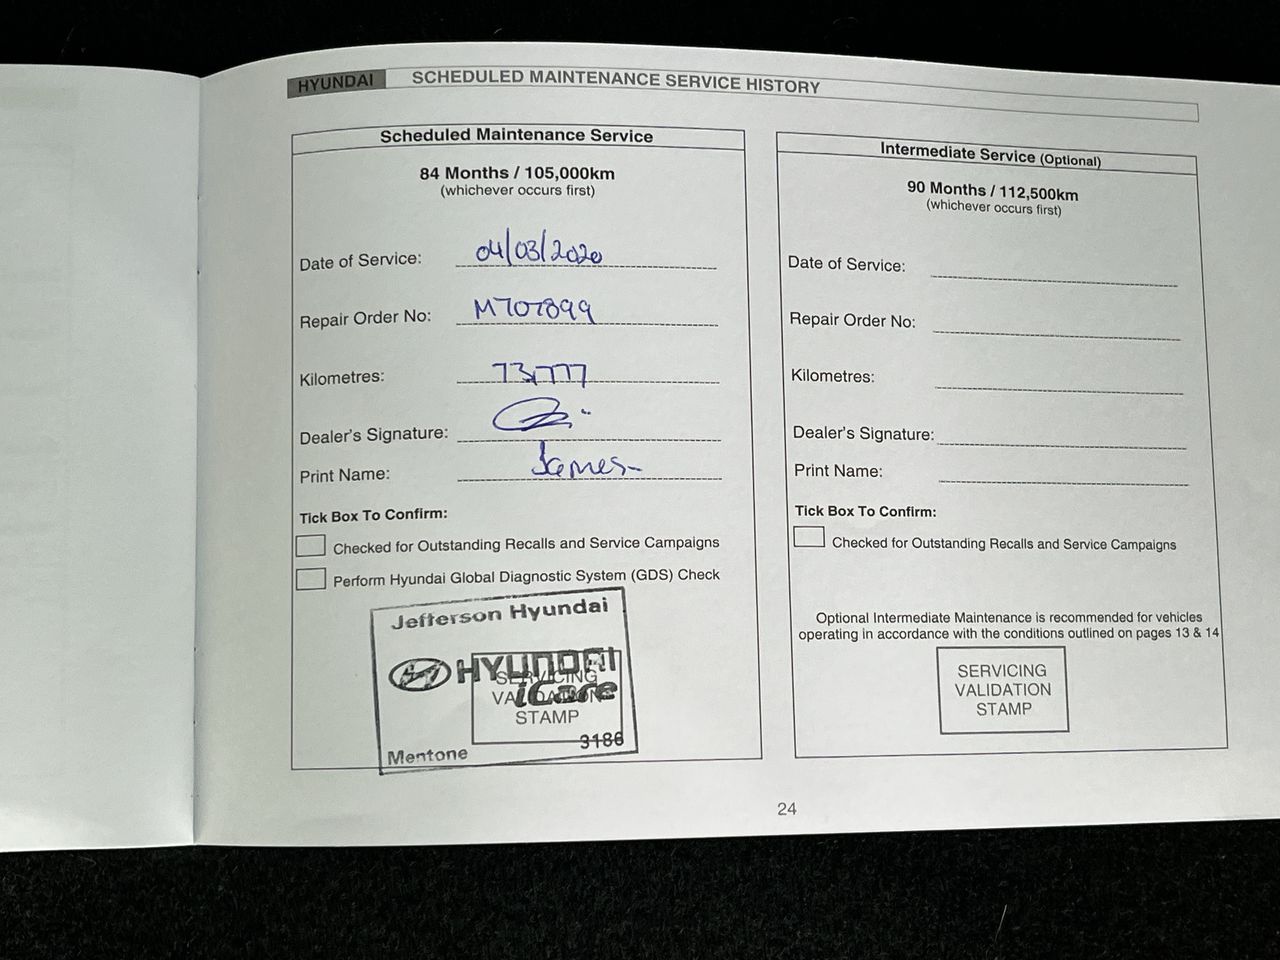 HYUNDAI SCHEDULED MAINTENANCE SERVICE HISTORY
Scheduled Maintenance Service
84 Months / 105,000km
(whichever occurs first)
Date of Service: 04/03/2020
Repair Order No: M707899
Kilometres: 73,777
Dealer's Signature:
Print Name: James
Tick Box To Confirm:
Checked for Outstanding Recalls and Service Campaigns
Perform Hyundai Global Diagnostic System (GDS) Check
Jefferson Hyundai
HYUNDAI
iCare
SERVICING
VALIDATION
STAMP
3186
Mentone
Intermediate Service (Optional)
90 Months / 112,500km
(whichever occurs first)
Date of Service:
Repair Order No:
Kilometres:
Dealer's Signature:
Print Name:
Tick Box To Confirm:
Checked for Outstanding Recalls and Service Campaigns
Optional Intermediate Maintenance is recommended for vehicles
operating in accordance with the conditions outlined on pages 13 & 14
SERVICING
VALIDATION
STAMP
24